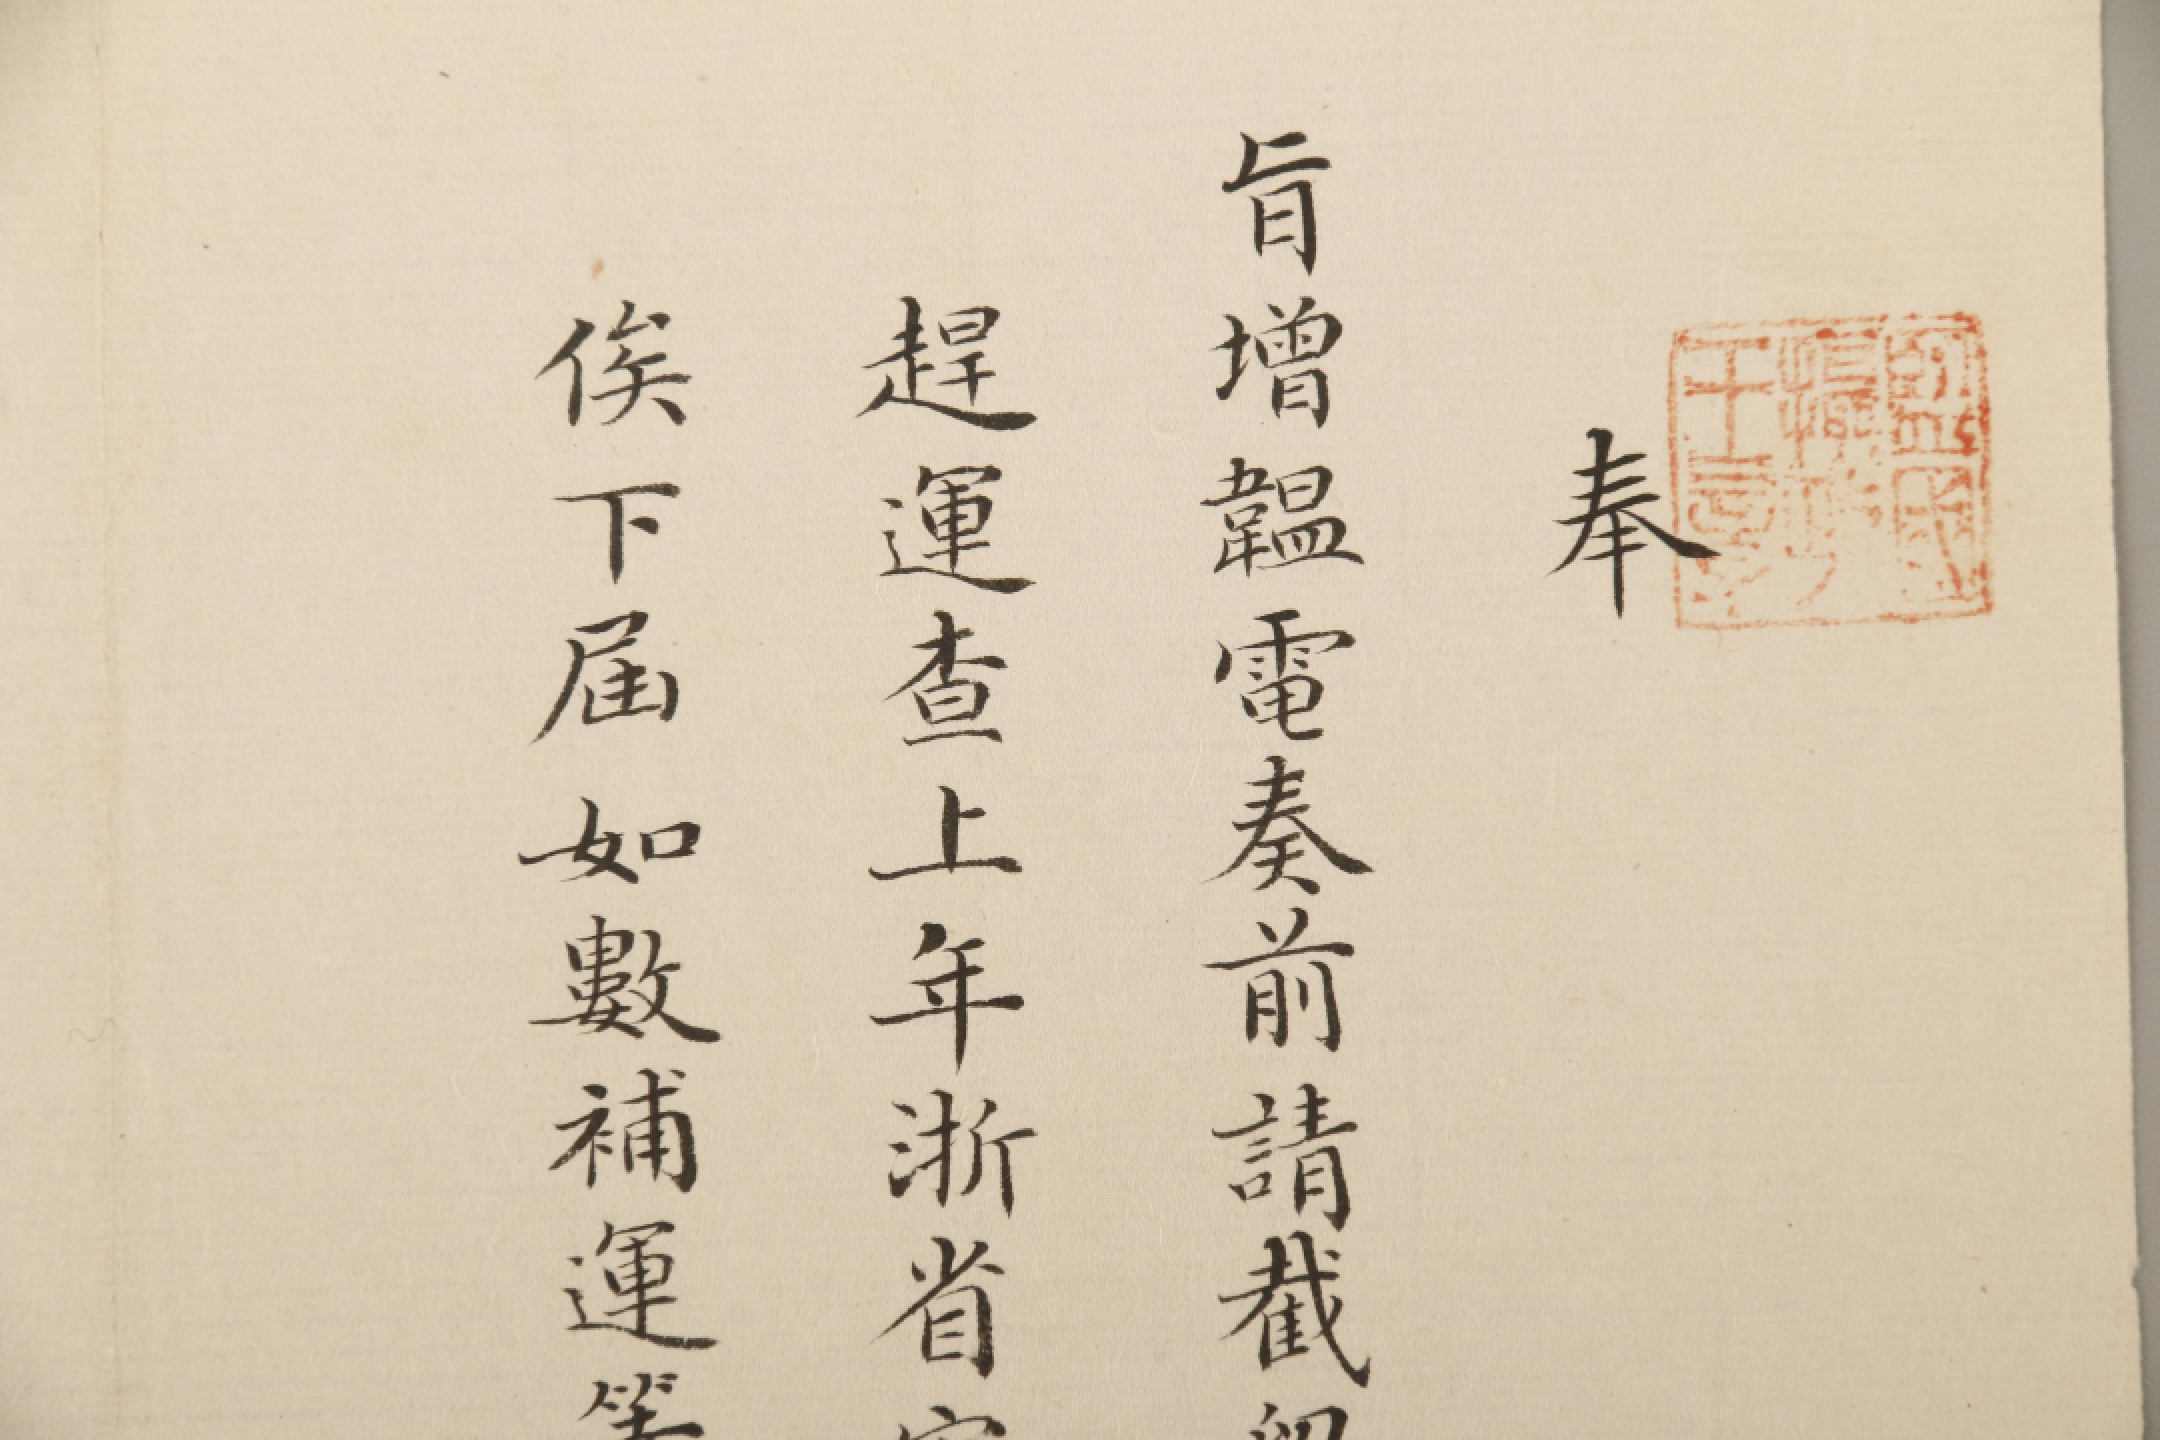 奉
旨增韞電奏前請截留
趕運查上年浙省
俟下届如數補運等